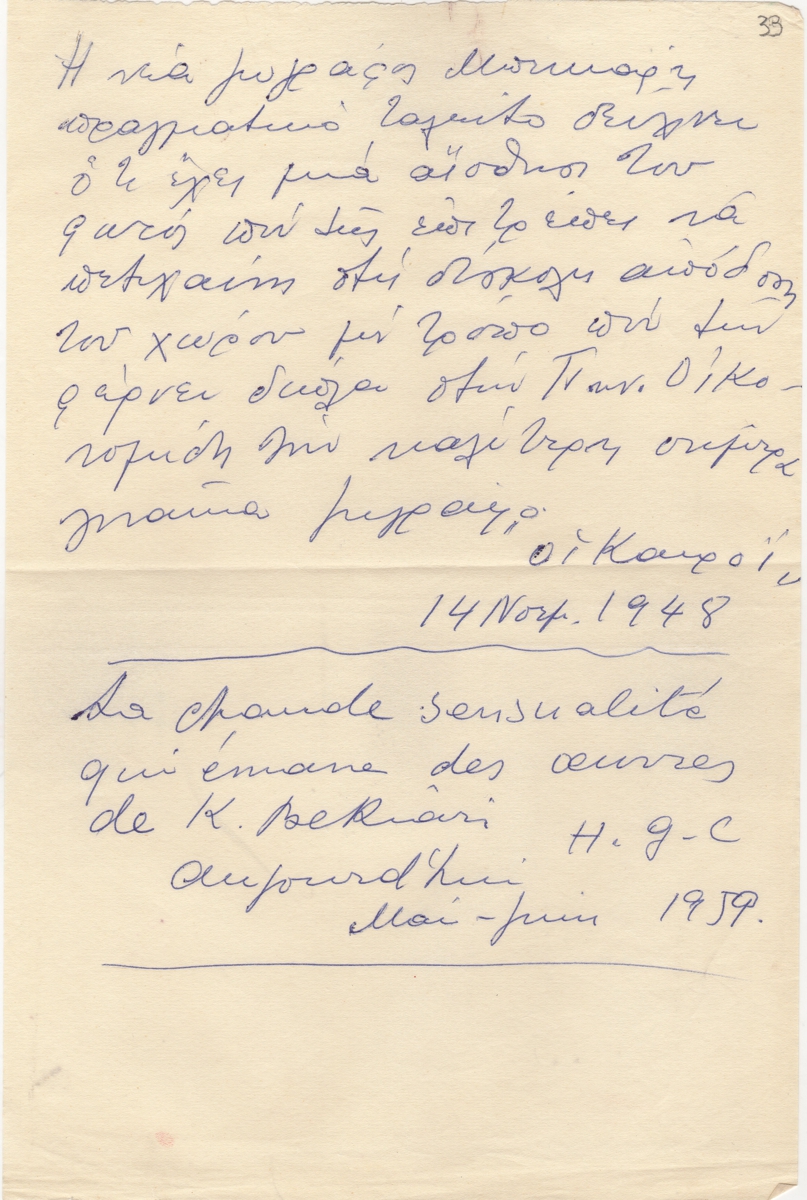 33
Η νέα ζωγράφος Μπεκιάρη
πραγματικό ταλέντο δείχνει
ὅτι ἔχει μιά αἴσθηση τοῦ
φωτός πού τῆς ἐπιτρέπει νά
πετυχαίνη στή δύσκολη ἀπόδοση
τοῦ χώρου μέ τρόπο πού τήν
φέρνει δίπλα στήν Πην. Οἰκο-
νομίδη τήν καλύτερη σήμερα
γυναίκα ζωγράφο
"Οἱ Καιροί"
14 Νοεμ. 1948
La chaude sensualité
qui émane des œuvres
de K. Bekiâri H. g-C
Aujourd'hui
Mai-juin 1959.